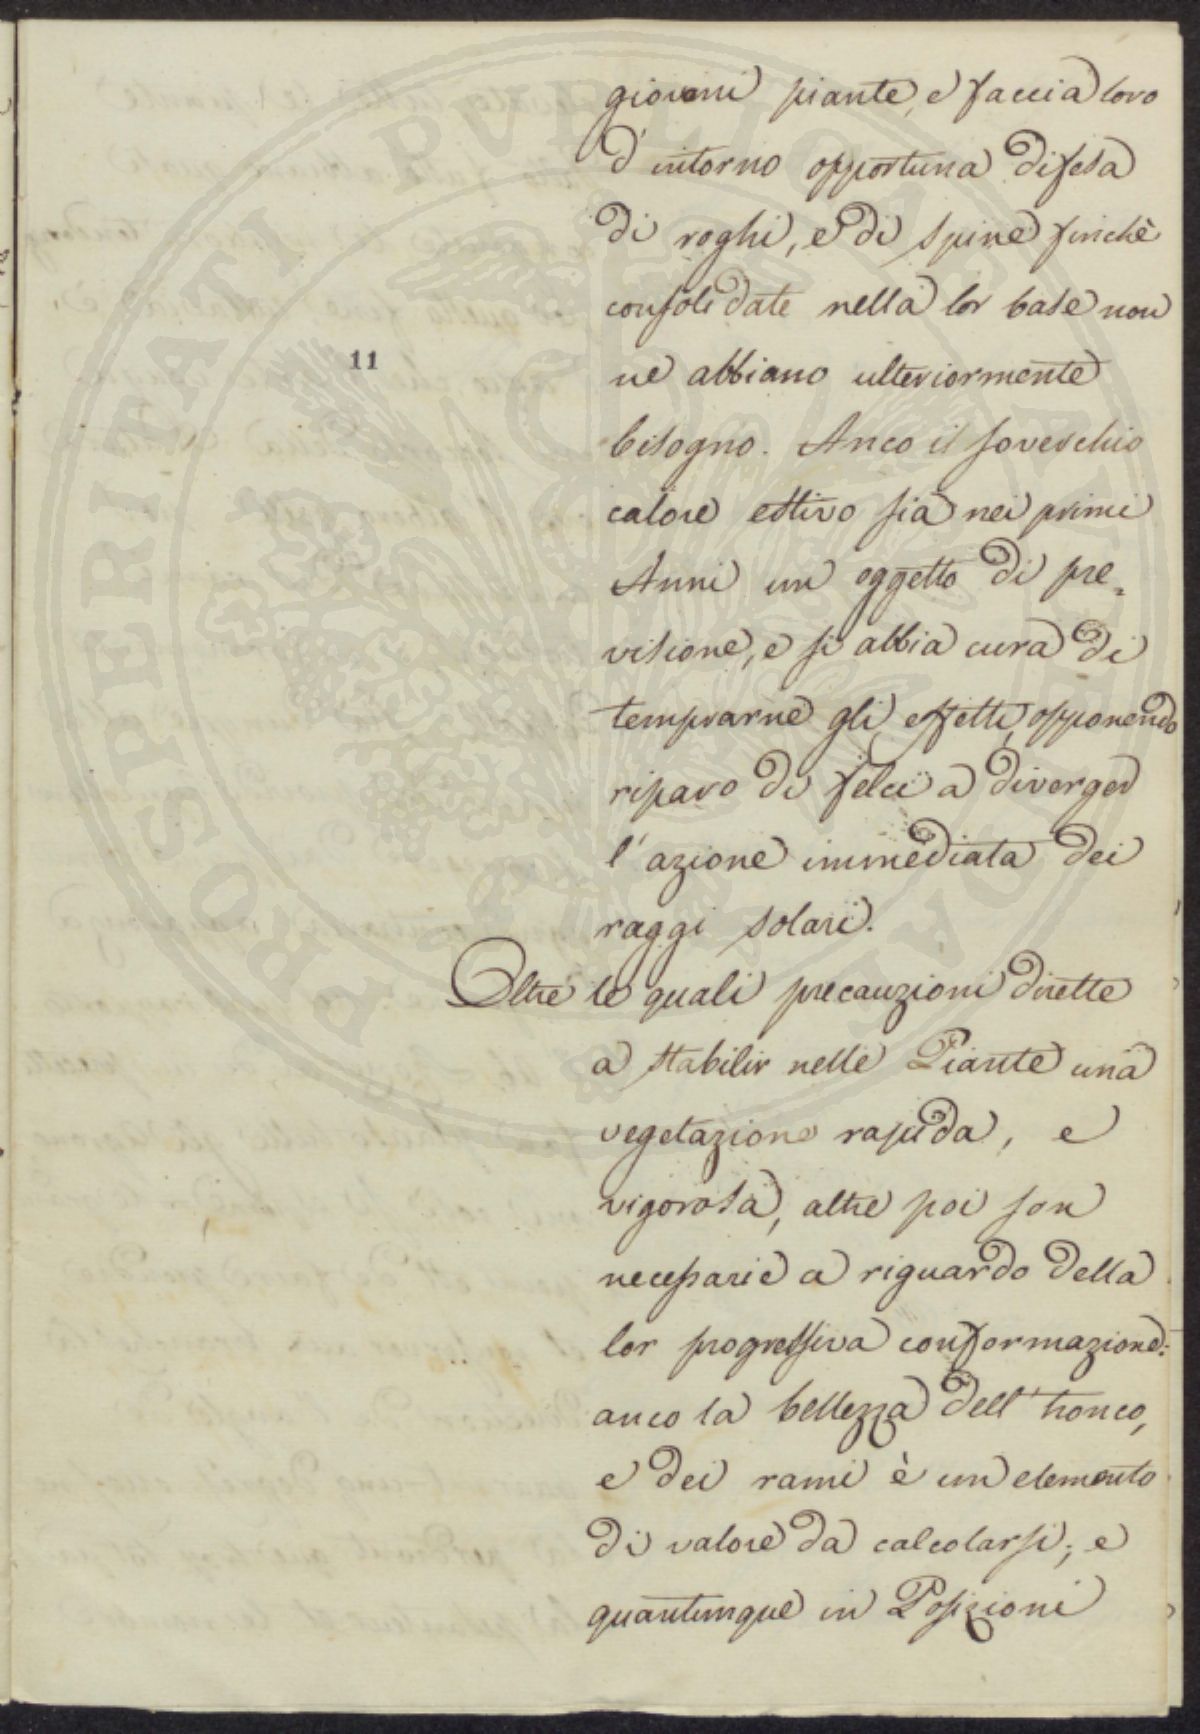 PROSPERITATI PVBLICAE AVGENDAE
11
giovani piante, e faccia loro
d'intorno opportuna difesa
di roghi, e di spine finchè
consolidate nella lor base non
ne abbiano ulteriormente
bisogno. Anco il soverchio
calore estivo sia nei primi
Anni un oggetto di pre=
visione, e si abbia cura di
temprarne gli effetti, opponendo
riparo di felci a diverger
l'azione immediata dei
raggi solari.
Oltre le quali precauzioni dirette
a stabilir nelle Piante una
vegetazione rapida, e
vigorosa, altre poi son
necessarie a riguardo della
lor progressiva conformazione:
anco la bellezza dell' tronco,
e dei rami è un elemento
di valore da calcolarsi; e
quantunque in Posizioni